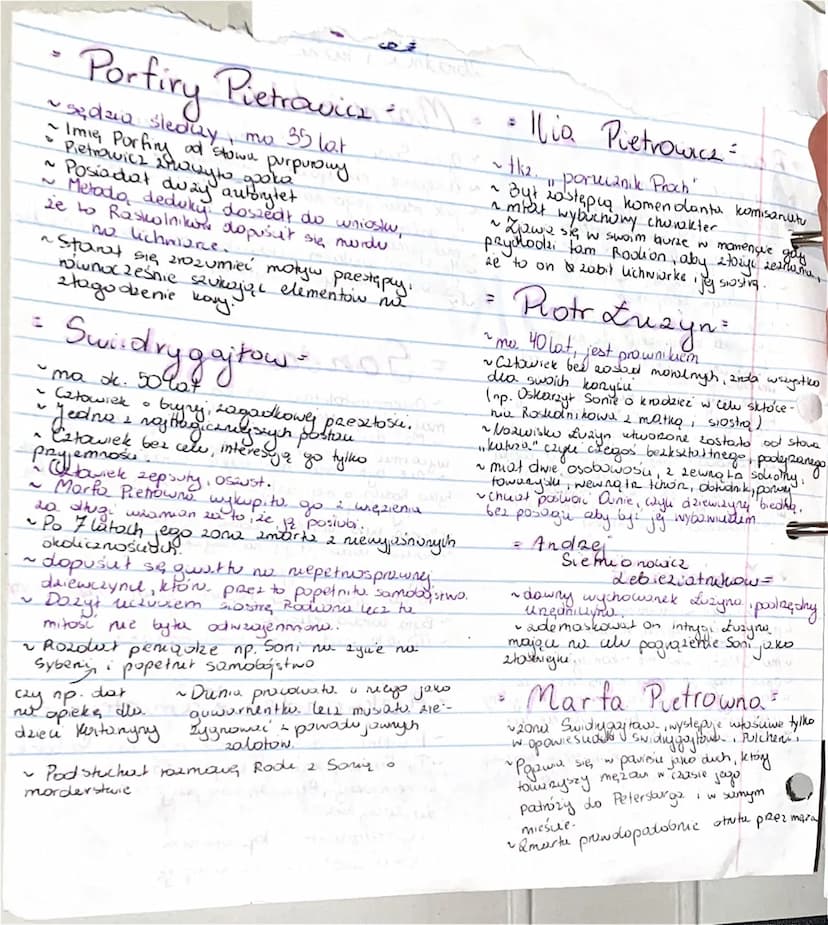 = Porfiry Pietrowicz =
~ sędzia śledczy, ma 35 lat
~ Imię Porfiry od słowa purpurowy
~ Pietrowicz znaczyło opoka
~ Posiadał duży autorytet
~ Metodą dedukcji doszedł do wniosku,
że to Raskolnikow dopuścił się mordu
na lichwiarce.
~ Starał się zrozumieć motyw przestępcy,
równocześnie szukając elementów na
złagodzenie kary.
= Swidrygajłow =
~ ma ok. 50 lat
~ Człowiek o burej, zagadkowej przeszłości,
~ Jedna z najtragiczniejszych postaci
~ Człowiek bez celu, interesują go tylko
przyjemności
~ Człowiek zepsuty, oszust.
~ Marfa Pietrowna wykupiła go z więzienia
za długi wzamian za to, że ją poślubi.
~ Po 7 latach jego żona zmarła z niewyjaśnionych
okolicznościach.
~ dopuścił się gwałtu na niepełnosprawnej
dziewczynce, która przez to popełniła samobójstwo.
~ Dożył uczuciem siostrę Rodiona lecz ta
miłość nie była odwzajemniona.
~ Rozdał pieniądze np. Soni na życie na
Syberii i popełnił samobójstwo
czy np. dał
na opiekę dla
dzieci Katarzyny
~ Dunia pracowała u niego jako
guwernantka lecz musiała zre-
zygnować z powodu jawnych
zalotów.
~ Podsłuchał rozmowę Rodi z Sonią o
morderstwie
= Ilia Pietrowicz =
~ tkz. "porucznik Proch"
~ Był zastępcą komendanta komisariatu
~ miał wybuchowy charakter
~ Zjawia się w swoim biurze w momencie gdy
przychodzi tam Rodion, aby złożyć zeznania,
że to on zabił lichwiarkę i jej siostrę.
= Piotr Łużyn =
~ ma 40 lat, jest prawnikiem
~ Człowiek bez zasad moralnych, zrobi wszystko
dla swoich korzyści
(np. Oskarżył Sonię o kradzież w celu skłóce-
nia Raskolnikowa z matką i siostrą)
~ Nazwisko Łużyn utworzone zostało od słowa
"kałuża" czyli czegoś bezkształtnego, podejrzanego
~ miał dwie osobowości, z zewnątrz szkolny,
towarzyski, wewnątrz tchórz, obłudnik,
~ chciał poślubić Dunię, czyli dziewczynę biedną,
bez posagu aby być jej wybawicielem
= Andrzej
Siemionowicz
Lebieziatnikow =
~ dawny wychowanek Łużyna, podrzędny
urzędniczyna.
~ zdemaskował on intrygi Łużyna
mające na celu pogrążenie Soni jako
złodziejki
= Marfa Pietrowna =
~ żona Swidrygajłowa, występuje właściwie tylko
w opowieściach Swidrygajłowa i Pulcherii,
~ Pojawia się w powieści jako duch, który
towarzyszy mężowi w czasie jego
podróży do Petersburga i w samym
mieście.
~ Zmarła prawdopodobnie otruta przez męża